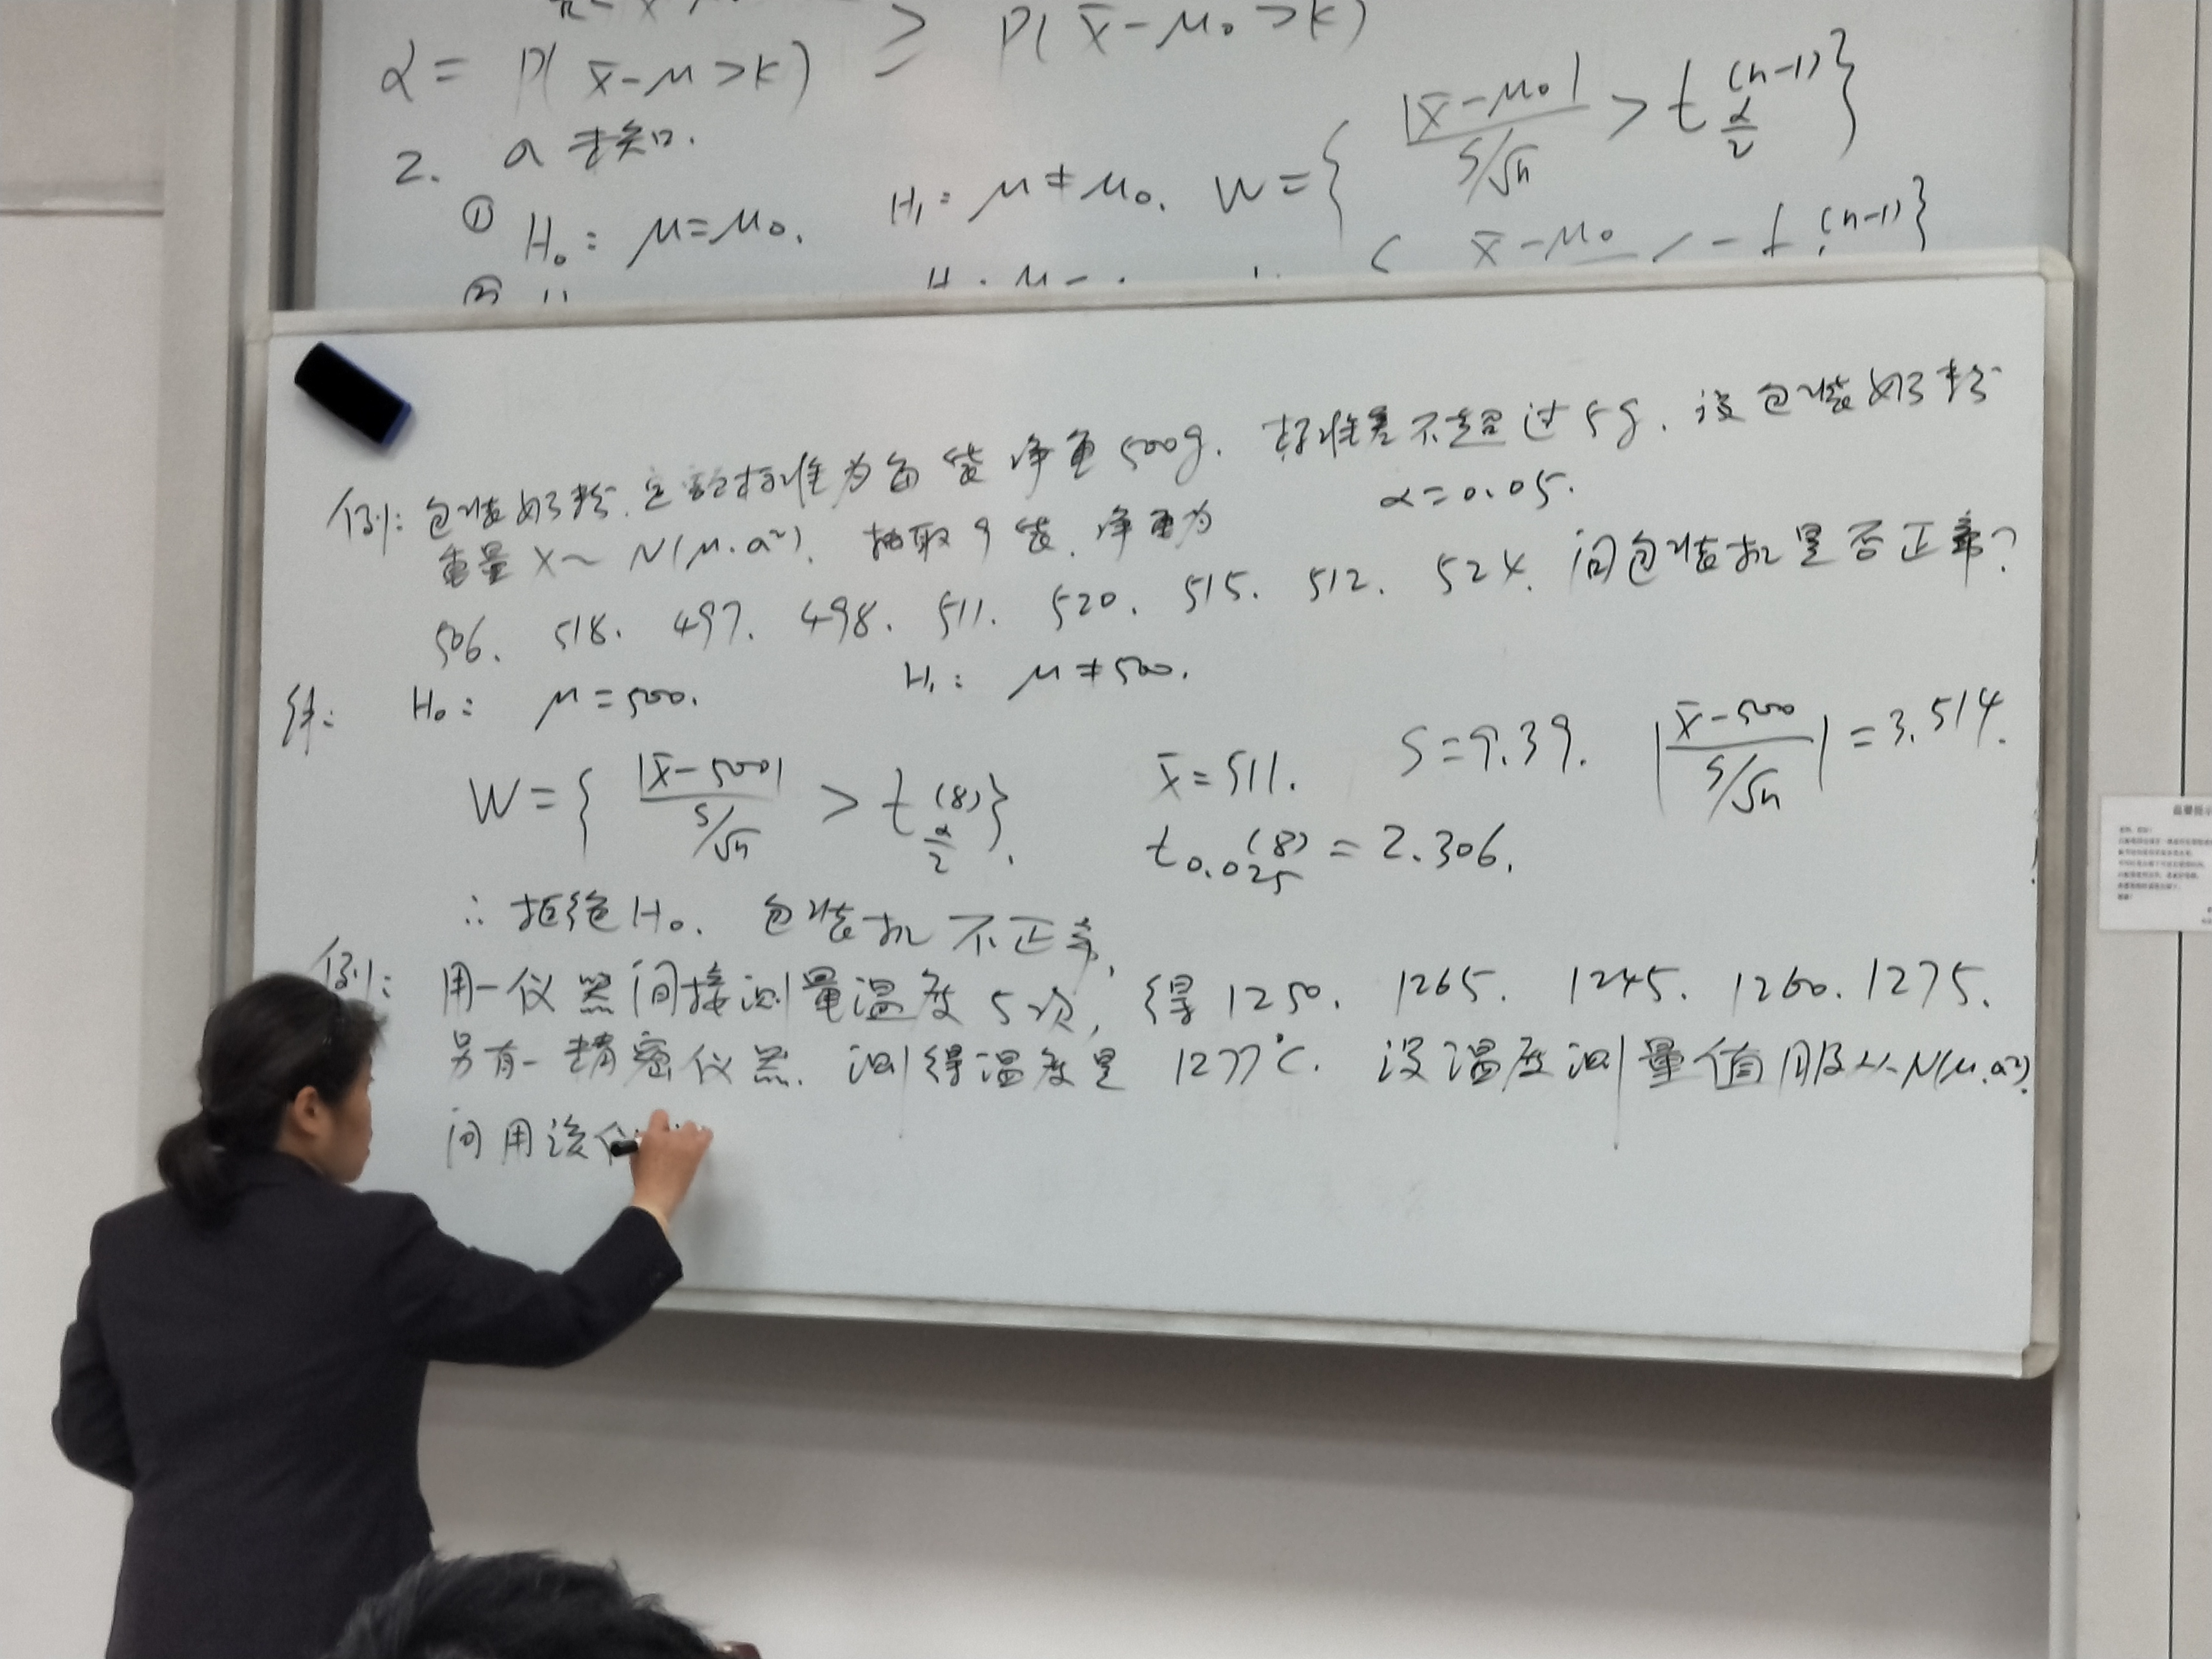 α = P( x̄-μ >k) ≥ P( x̄-μ₀ >k)
2. σ 未知.
① H₀: μ=μ₀. H₁: μ≠μ₀. W={ |x̄-μ₀| / S/√n > t α/2 (n-1) }
x̄-μ₀ (n-1)}
例: 包装奶粉. 定额标准为每袋净重500g. 标准差不超过5g. 设包装奶粉
重量 X~ N(μ.σ²). 抽取9袋. 净重为 α=0.05.
506. 518. 497. 498. 511. 520. 515. 512. 524. 问包装机是否正常?
解: H₀: μ=500. H₁: μ≠500.
W={ |x̄-500| / S/√n > t α/2 (8) }. x̄=511. S=9.39. | x̄-500 / S/√n | = 3.514.
t 0.025 (8) = 2.306.
∴ 拒绝H₀. 包装机不正常.
例: 用一仪器间接测量温度5次, 得 1250. 1265. 1245. 1260. 1275.
另有一精密仪器. 测得温度是 1277°C. 设温度测量值服从N(μ.σ²).
问用该